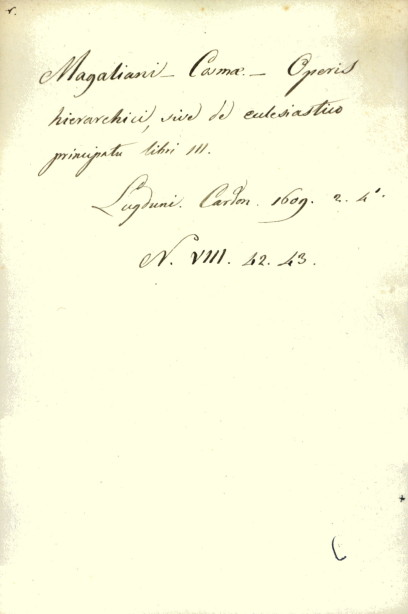 Magaliani - Cosmæ - Operis
hierarchici, sive de ecclesiastico
principatu libri III.
Lugduni. Cardon. 1609. 2. 4°.
N. VIII. 42. 43.